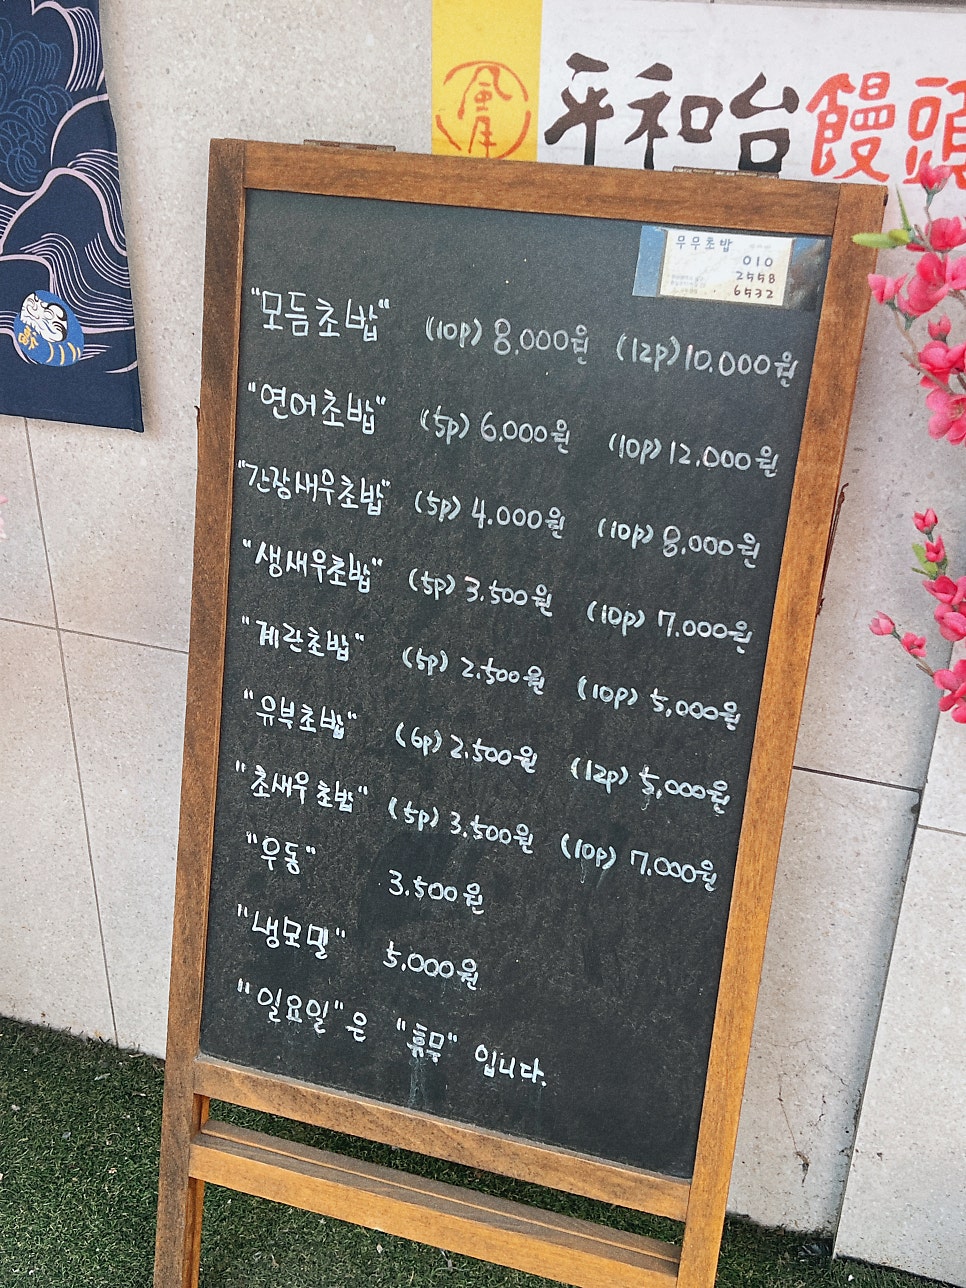 平和台饅頭
무우초밥
010
2558
6532
"모듬초밥" (10p) 8,000원 (12p) 10,000원
"연어초밥" (5p) 6,000원 (10p) 12,000원
"간장새우초밥" (5p) 4,000원 (10p) 8,000원
"생새우초밥" (5p) 3,500원 (10p) 7,000원
"계란초밥" (5p) 2,500원 (10p) 5,000원
"유부초밥" (6p) 2,500원 (12p) 5,000원
"초새우초밥" (5p) 3,500원 (10p) 7,000원
"우동" 3,500원
"냉모밀" 5,000원
"일요일"은 "휴무" 입니다.